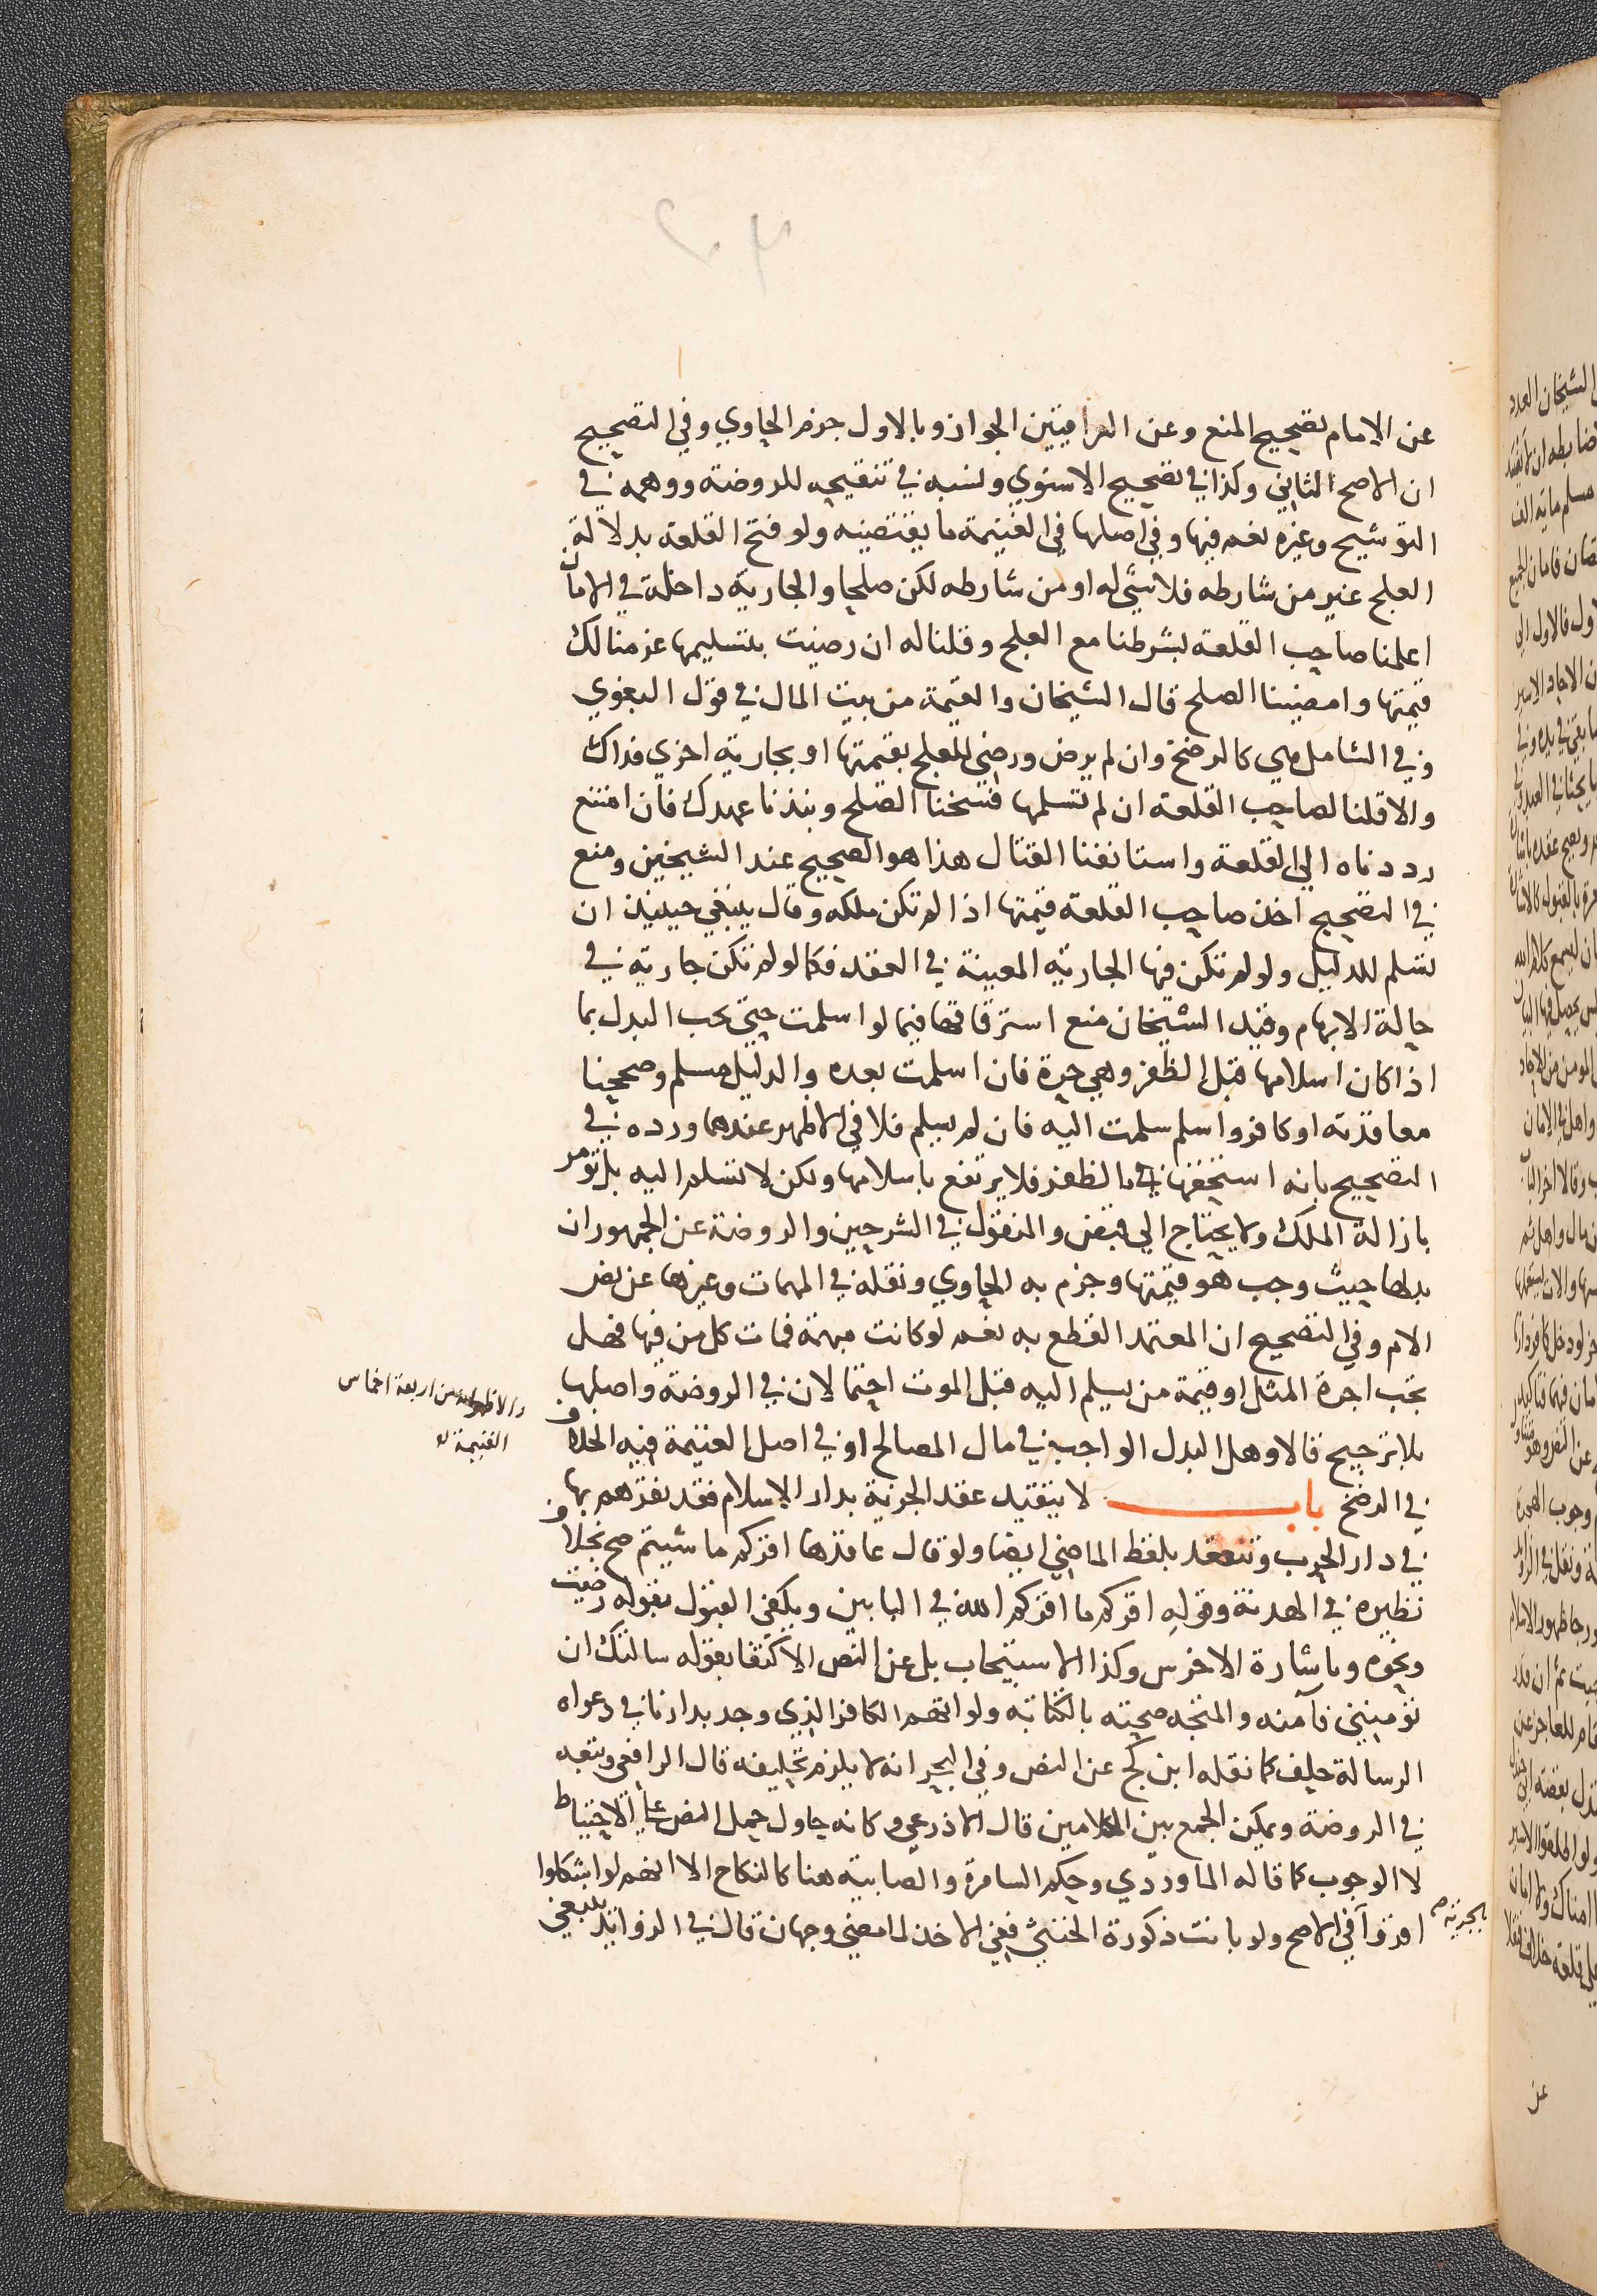 عن الامام تصحيح المنع وعن العراقيين الجواز وبالاول جزم الحاوي وفي التصحيح
ان الاصح الثاني وكذا في تصحيح الاسنوي ونسبه في تنقيحه للروضة ووهمه في
التوشيح وغيره نعم فيها وفي اصلها في الغنيمة ما يقتضيه ولو فتح القلعة بدلالة
العلج غير من شارطه فلا شي له او من شارطه لكن صلحا والجارية داخلة في الامان
اعلمنا صاحب القلعة بشرطنا مع العلج وقلنا له ان رضيت بتسليمها غرمنا لك
قيمتها وامضينا الصلح قال الشيخان والقيمة من بيت المال في قول البغوي
وفي الشامل هي كالرضخ وان لم يرض ورضي العلج بقيمتها او بجارية اخري فذاك
والا قلنا لصاحب القلعة ان لم تسلمها فسخنا الصلح ونبذنا عهدك فان امتنع
رددناه الي القلعة واستانفنا القتال هذا هو الصحيح عند الشيخين ومنع
في التصحيح اخذ صاحب القلعة قيمتها اذا لم تكن ملكه وقال ينبغي حينيذ ان
تسلم للدليل ولو لم تكن فيها الجارية المعينة في العقد فكما لو لم تكن جارية في
حالة الابهام وقيد الشيخان منع استرقاقها فيما لو اسلمت حتي يجب البدل بما
اذا كان اسلامها قبل الظفر وهي حرة فان اسلمت بعده والدليل مسلم وصححنا
معاقدته او كافر واسلم سلمت اليه فان لم يسلم فلا في الاظهر عندهما ورده في
التصحيح بانه استحقها بالظفر فلا يرتفع باسلامها ولكن لا تسلم اليه بل يؤمر
بازالة الملك ولا يحتاج الي قبض والمنقول في الشرحين والروضة عن الجمهور ان
بدلها حيث وجب هو قيمتها وجزم به الحاوي ونقله في المهمات وغيرها عن نص
الام وفي التصحيح ان المعتمد القطع به نعم لو كانت مبهمة فمات كل من فيها فهل
تجب اجرة المثل او قيمة من يسلم اليه قبل الموت احتمالان في الروضة واصلها
بلا ترجيح قالا وهل البدل الواجب في مال المصالح او في اصل الغنيمة فيه الخلاف
في الرضخ باب لا يتقيد عقد الجزية بدار الاسلام فقد نقرهم بها
في دار الحرب وتنعقد بلفظ الماضي ايضا ولو قال عاقدها اقركم ما شيتم صح بخلاف
نظيره في الهدنة وقوله اقركم ما اقركم الله في البابين ويكفي القبول بقوله رضيت
ونحوه وباشارة الاخرس وكذا الاستيجاب بل عن النص الاكتفا بقوله سالتك ان
تؤمنني فآمنه والمتجه صحته بالكتابة ولو اتهم الكافر الذي وجد بدارنا في دعواه
الرسالة حلف كما نقله ابن كج عن النص وفي البحر انه لا يلزم تحليفه قال الرافعي وتبعه
في الروضة ويمكن الجمع بين الكلامين قال الاذرعي وكانه حاول حمل النص علي الاحتياط
لا الوجوب كما قاله الماوردي وحكم السامرة والصابية هنا كالنكاح الا انهم لو اشكلوا
اقروا في الاصح ولو بانت ذكورة الخنثي ففي الاخذ لما مضي وجهان قال في الزوائد ينبغي
والاظهر انه من اربعة اخماس
الغنيمة
بالجزية صح